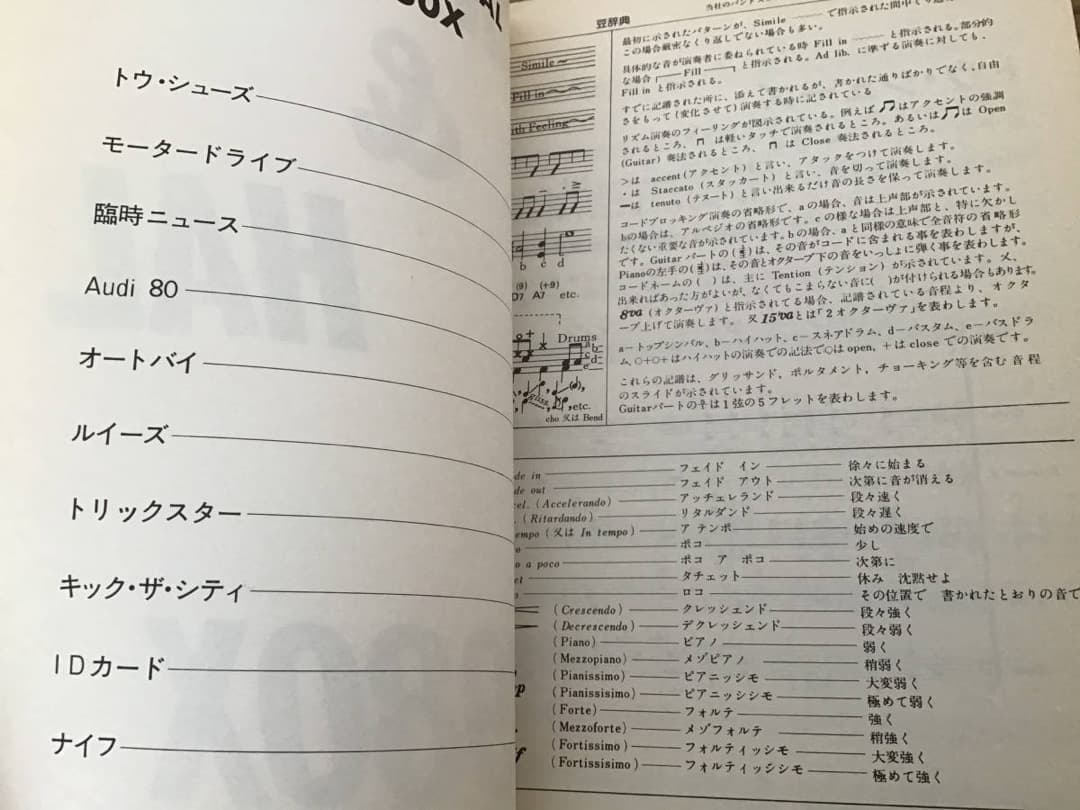 AL
BOX
トウ・シューズ
モータードライブ
臨時ニュース
Audi 80
オートバイ
ルイーズ
トリックスター
キック・ザ・シティ
IDカード
ナイフ
豆辞典
最初に示されたパターンが、Simile で指示された間中くり返
この場合厳密なくり返しでない場合も多い。
具体的な音が演奏者に委ねられている時 Fill in と指示される。部分的
な場合 Fill と指示される。Ad lib. に準ずる演奏に対しても、
Fill in と指示される。
すでに記譜された所に、添えて書かれるが、書かれた通りばかりでなく、自由
さをもって(変化させて)演奏する時に記されている
リズム演奏のフィーリングが図示されている。例えば ♫ はアクセントの強調
されるところ、⊓ は軽いタッチで演奏されるところ。あるいは ♫ は Open
(Guitar) 奏法されるところ、⊓ は Close 奏法されるところ。
>は accent(アクセント) と言い、アタックをつけて演奏します。
・は Staccato (スタッカート) と言い、音を切って演奏します。
ーは tenuto (テヌート) と言い出来るだけ音の長さを保って演奏します。
コードブロッキング演奏の省略形で、aの場合、音は上声部が示されています。
bの場合は、アルペジオの省略形です。cの様な場合は上声部と、特に欠かし
たくない重要な音が示されています。bの場合、aと同様の意味で全音符の省略形
です。Guitar パートの( )は、その音がコードに含まれる事を表わしますが、
Pianoの左手の( )は、その音とオクターブ下の音をいっしょに弾く事を表わします。
コードネームの( )は、主に Tention (テンション) が示されています。又、
出来ればあった方がよいが、なくてもこまらない音に( )が付けられる場合もあります。
8va (オクターヴァ) と指示されてる場合、記譜されている音程より、オクタ
ーブ上げて演奏します。又 15va とは「2オクターヴァ」を表わします。
aートップシンバル、bーハイハット、cースネアドラム、dーバスタム、eーバスドラ
ム、○+○+はハイハットの演奏での記法で○は open, +は close での演奏です。
これらの記譜は、グリッサンド、ポルタメント、チョーキング等を含む音程
のスライドが示されています。
Guitarパートの は1弦の5フレットを表わします。
Simile
Fill in
ith Feeling
b c d
(9) (+9)
D7 A7 etc.
Drums
a
b
c
d
e
gliss.
etc.
cho 又は Bend
de in フェイド イン 徐々に始まる
de out フェイド アウト 次第に音が消える
cel. (Accelerando) アッチェレランド 段々速く
. (Ritardando) リタルダンド 段々遅く
empo (又は In tempo) ア テンポ 始めの速度で
o ポコ 少し
o a poco ポコ ア ポコ 次第に
et タチェット 休み 沈黙せよ
o ロコ その位置で 書かれたとおりの音で
(Crescendo) クレッシェンド 段々強く
(Decrescendo) デクレッシェンド 段々弱く
(Piano) ピアノ 弱く
(Mezzopiano) メゾピアノ 稍弱く
(Pianissimo) ピアニッシモ 大変弱く
p (Pianissisimo) ピアニッシシモ 極めて弱く
(Forte) フォルテ 強く
(Mezzoforte) メゾフォルテ 稍強く
f (Fortissimo) フォルティッシモ 大変強く
(Fortissisimo) フォルティッシシモ 極めて強く